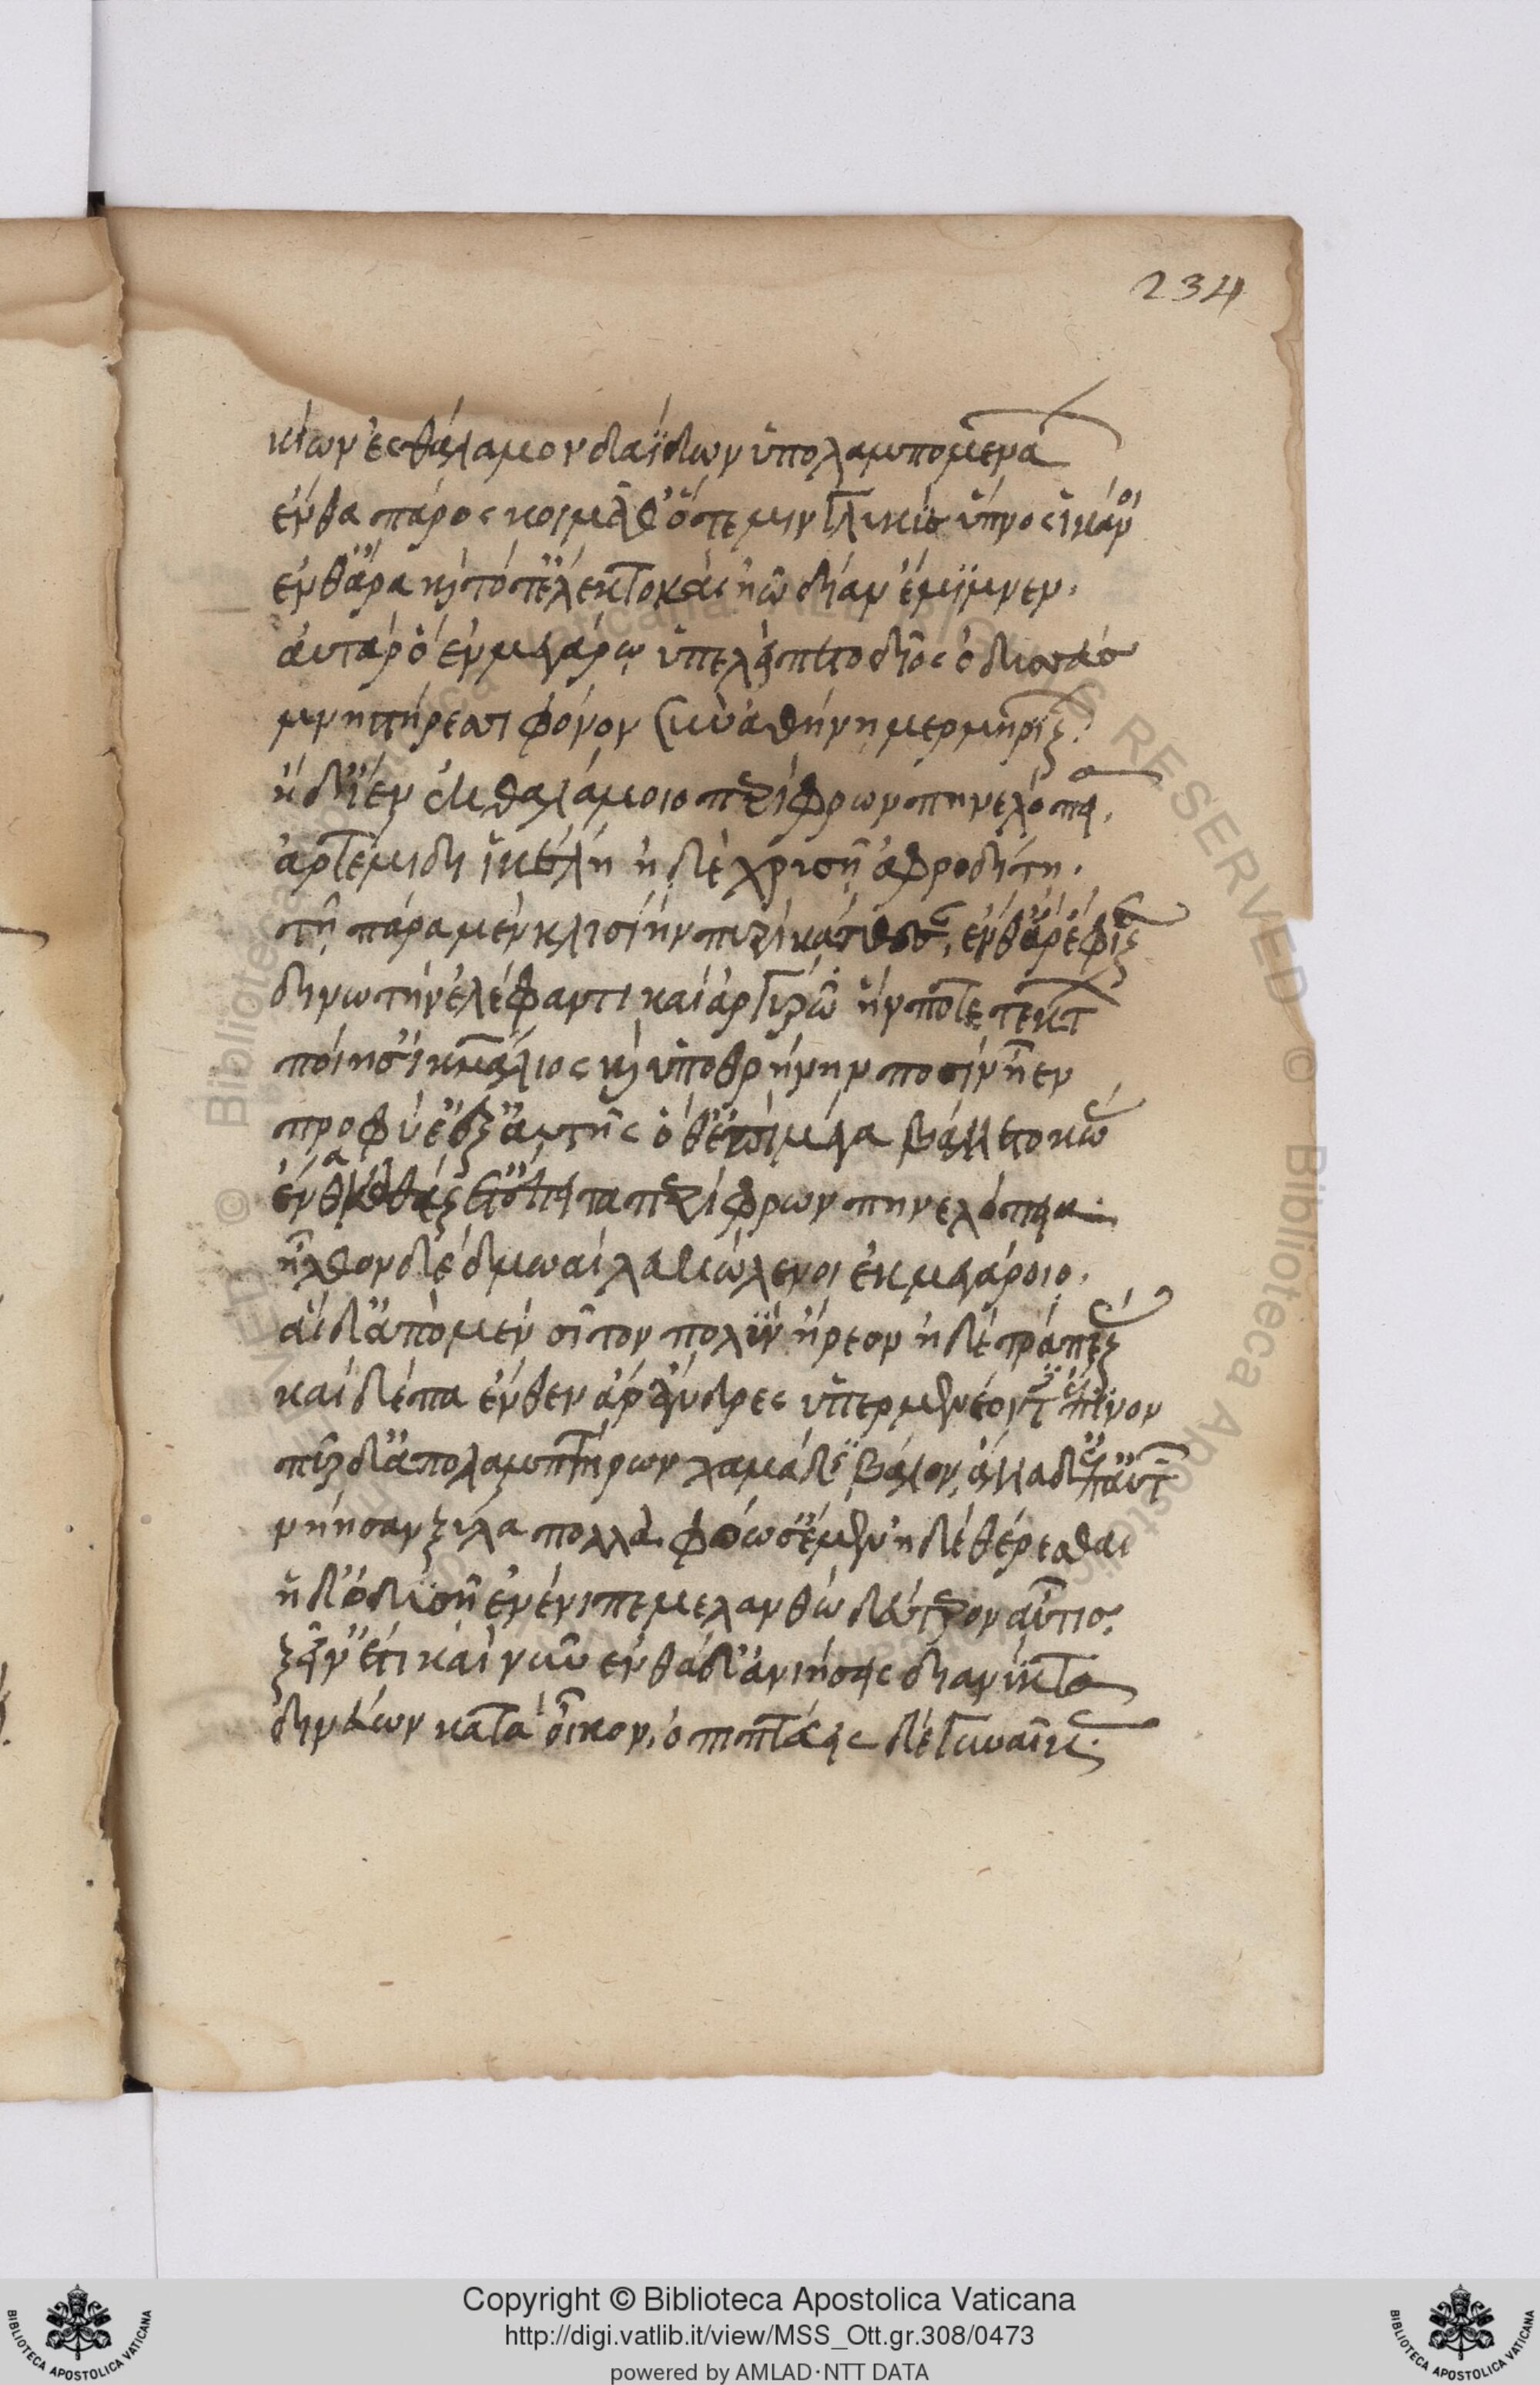 234
κίων ἐς θάλαμον δαΐδων ὕπο λαμπομενά
ἔνθα πάρος κοιμᾶθ' ὅτε μιν γλυκὺς ὕπνος ἱκάνοι
ἔνθ' ἄρα κὶ τότ' ἔλεκτο καὶ ἠῶ δίαν ἔμιμνεν.
αὐτὰρ ὁ ἐν μεγάρω ὑπελείπετο δῖος ὀδυσσεύσ
μνηστήρεσσι φόνον σὺν ἀθήνη μερμηρίζ.
ἡ δ' ἴεν ἐκ θαλάμοιο περίφρων πηνελόπεια.
ἀρτέμιδι ἰκέλη ἠδὲ χρυσῆ ἀφροδίτη.
τῆ πάρα μὲν κλισίην πυρὶ κάτθεσ, ἔνθ' ἄρ' ἔφιζ
δινωτὴν ἐλέφαντι καὶ ἀργύρω ἥν ποτε τέκτ
ποίησ' ἰκμάλιος κὶ ὑπὸ θρῆνην ποσὶν ἧεν
προσφυέ' ἐξ αὐτῆς ὅθ' ἐπὶ μέγα βάλλετο κῶ
ἔνθα καθέζετ' ἔπειτα περίφρων πηνελόπεια.
ἦλθον δὲ δμωαὶ λευκώλενοι ἐκ μεγάροιο.
αἱ δ' ἀπὸ μὲν σῖτον πολὺν ἥρεον ἠδὲ τραπέζ
καὶ δέπα ἔνθεν ἄρ' ἄνδρες ὑπερμενέοντ' ἔπινον
πῦρ δ' ἀπὸ λαμπτήρων χαμάδι βάλον, ἄλλα δ' ἐπ' αὐτ
νήησαν ξύλα πολλὰ φόως ἔμεν ἠδὲ θέρεσθαι
ἡ δ' ὀδυσῆ ἐνένιπε μελανθὼ δεύτερον αὖτισ.
ξεῖν' ἔτι καὶ νῦν ἐνθάδ' ἀνιήσεις διὰ νύκτα
δινέων κατὰ οἶκον, ὀπιπτεύεις δὲ γυναῖκ.
Copyright © Biblioteca Apostolica Vaticana
http://digi.vatlib.it/view/MSS_Ott.gr.308/0473
powered by AMLAD·NTT DATA